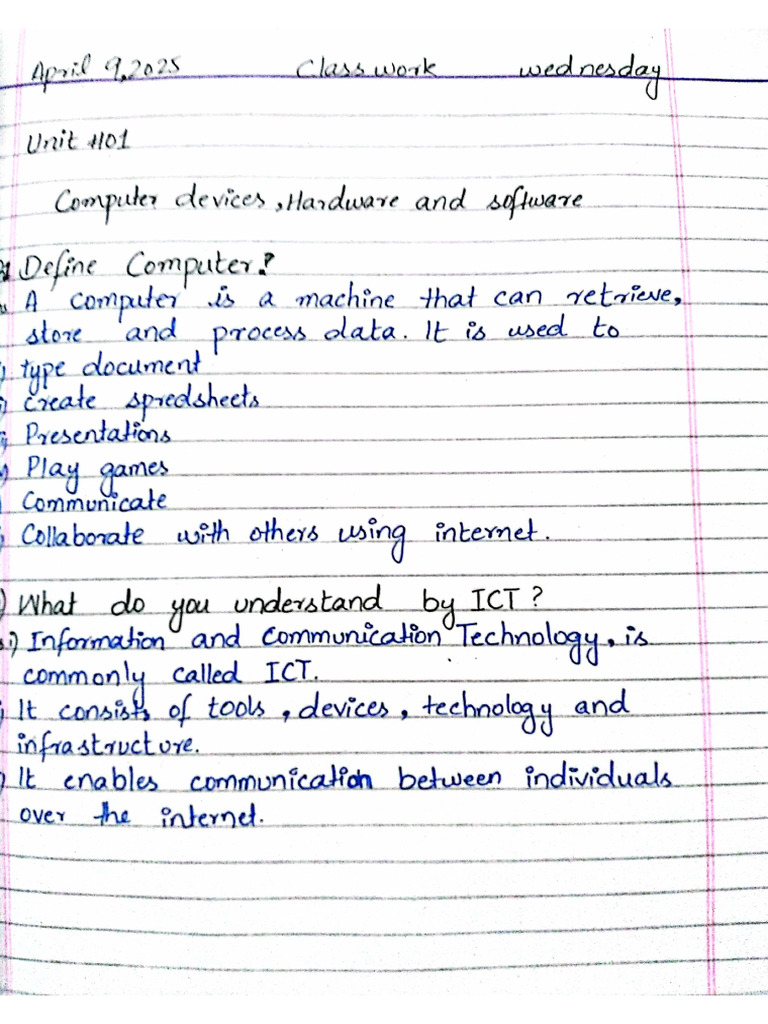 April 9,2025 Class work wednesday
Unit #01
Computer devices, Hardware and software
Define Computer?
A computer is a machine that can retrieve,
store and process data. It is used to
type document
create spredsheets
Presentations
Play games
Communicate
Collaborate with others using internet.
What do you understand by ICT?
i) Information and Communication Technology, is
commonly called ICT.
It consists of tools, devices, technology and
infrastructure.
It enables communication between individuals
over the internet.